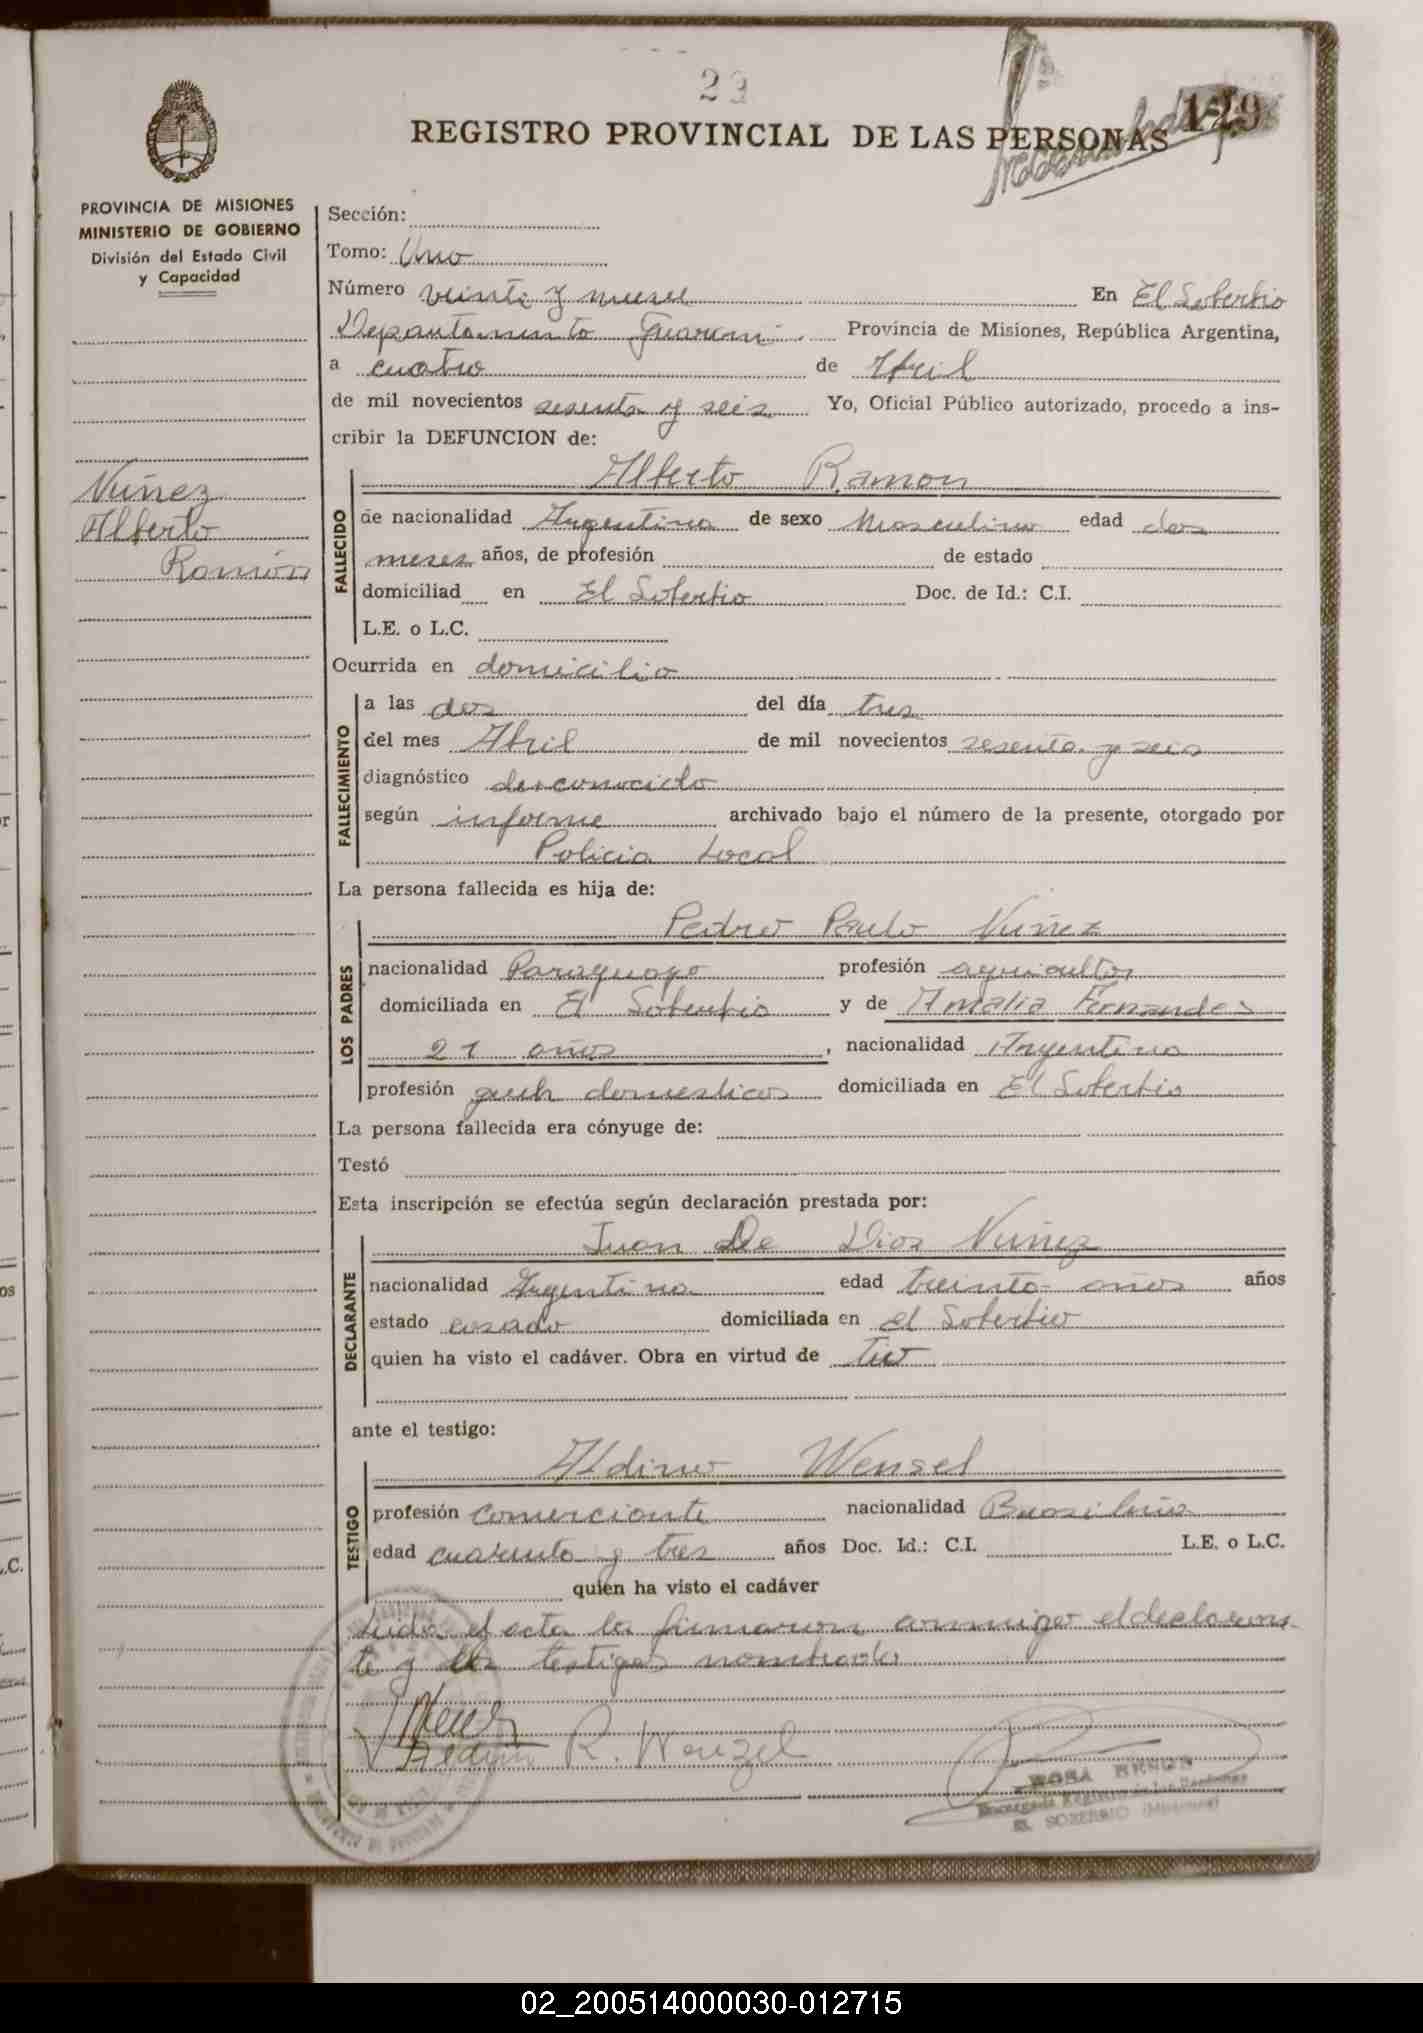 23
REGISTRO PROVINCIAL DE LAS PERSONAS 129
PROVINCIA DE MISIONES
MINISTERIO DE GOBIERNO
División del Estado Civil
y Capacidad
Nuñez
Alberto
Ramón
Sección:
Tomo: Uno
Número veinte y nueve En El Soberbio
Departamento Guarani Provincia de Misiones, República Argentina,
a cuatro de Abril
de mil novecientos sesenta y seis Yo, Oficial Público autorizado, procedo a ins-
cribir la DEFUNCION de:
Alberto Ramon
FALLECIDO
de nacionalidad Argentina de sexo Masculino edad dos
meses años, de profesión de estado
domiciliad en El Soberbio Doc. de Id.: C.I.
L.E. o L.C.
Ocurrida en domicilio
FALLECIMIENTO
a las dos del día tres
del mes Abril de mil novecientos sesenta y seis
diagnóstico desconocido
según informe archivado bajo el número de la presente, otorgado por
Policia Local
La persona fallecida es hija de:
Pedro Paulo Nuñez
LOS PADRES
nacionalidad Paraguayo profesión agricultor
domiciliada en El Soberbio y de Amalia Fernandes
21 años , nacionalidad Argentina
profesión queh domesticos domiciliada en El Soberbio
La persona fallecida era cónyuge de:
Testó
Esta inscripción se efectúa según declaración prestada por:
Juan De Dios Nuñez
DECLARANTE
nacionalidad Argentina edad treinta años años
estado casado domiciliada en el Soberbio
quien ha visto el cadáver. Obra en virtud de tio
ante el testigo:
Aldino Wensel
TESTIGO
profesión comerciante nacionalidad Brasileña
edad cuarenta y tres años Doc. Id.: C.I. L.E. o L.C.
quien ha visto el cadáver
Leida el acta la firmaron conmigo el declaran-
te y los testigos nombrado
R. Wenzel
ROSA
EL SOBERBIO (Misiones)
02_200514000030-012715